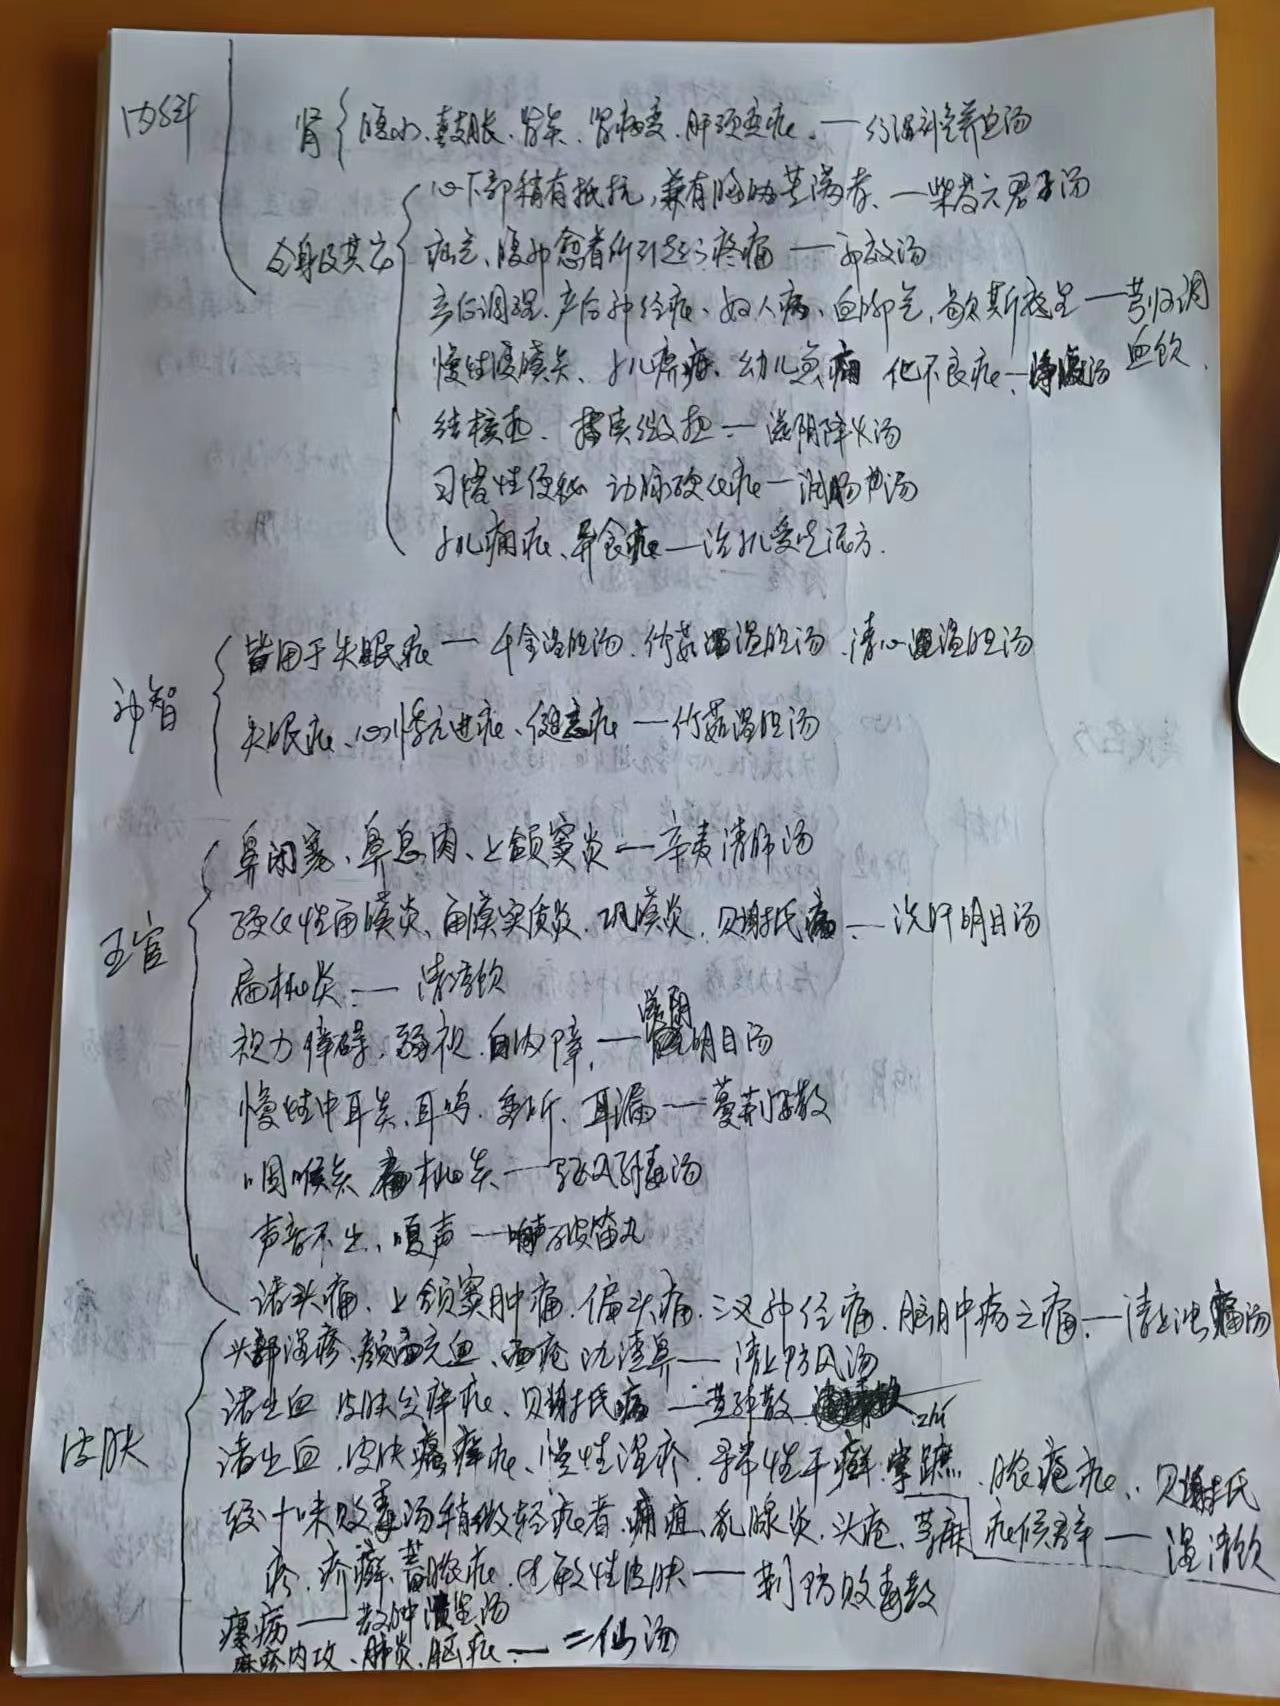 内科
肾 腹水、鼓胀、肾炎、肾病变、肝硬变症 — 分消利气养血汤
全身及其它
心下部稍有抵抗,兼有胸胁苦满者、— 柴芍六君子汤
疝气、腹神愈者所引起之疼痛 — 神效汤
产后调理、产后神经症、妇人病、血脚气、歇斯底里 — 芎归调血饮
慢性腹膜炎、小儿疥癣、幼儿 化不良症 — 净腹汤
结核热、 微热 — 滋阴降火汤
习惯性便秘 动脉硬化症 — 润肠汤
小儿痫症、异食症
神智
皆用于失眠症 — 千金温胆汤、竹茹温胆汤、清心温胆汤
失眠症、心悸亢进症、健忘症 — 竹茹温胆汤
五官
鼻闭塞、鼻息肉、上颌窦炎 — 辛夷清肺汤
硬化性角膜炎、角膜实质炎、巩膜炎、贝赫切氏病 — 洗肝明目汤
扁桃炎 — 清凉饮
视力障碍、弱视、白内障、— 滋阴明目汤
慢性中耳炎、耳鸣、重听、耳漏 — 蔓荆子散
咽喉炎 扁桃炎 — 驱风解毒汤
声音不出、嗄声 — 响声破笛丸
诸头痛、上颌窦肿痛、偏头痛、三叉神经痛、脑肿疡之痛、— 清上蠲痛汤
皮肤
头部湿疹、颜面充血、面疮 酒渣鼻 — 清上防风汤
诸出血 皮肤发痒症、贝赫切氏病 — 黄解散
诸出血、皮肤瘙痒症、慢性湿疹、寻常性干癣、掌蹠脓疱症、贝赫切氏症候群 — 温清饮
较十味败毒汤稍微轻症者、痈疽、乳腺炎、头疮、荨麻疹、疥癣、蓄脓症、过敏性皮肤 — 荆防败毒散
瘰疬 — 散肿溃坚汤
麻疹内攻、肺炎、脑症 — 二仙汤